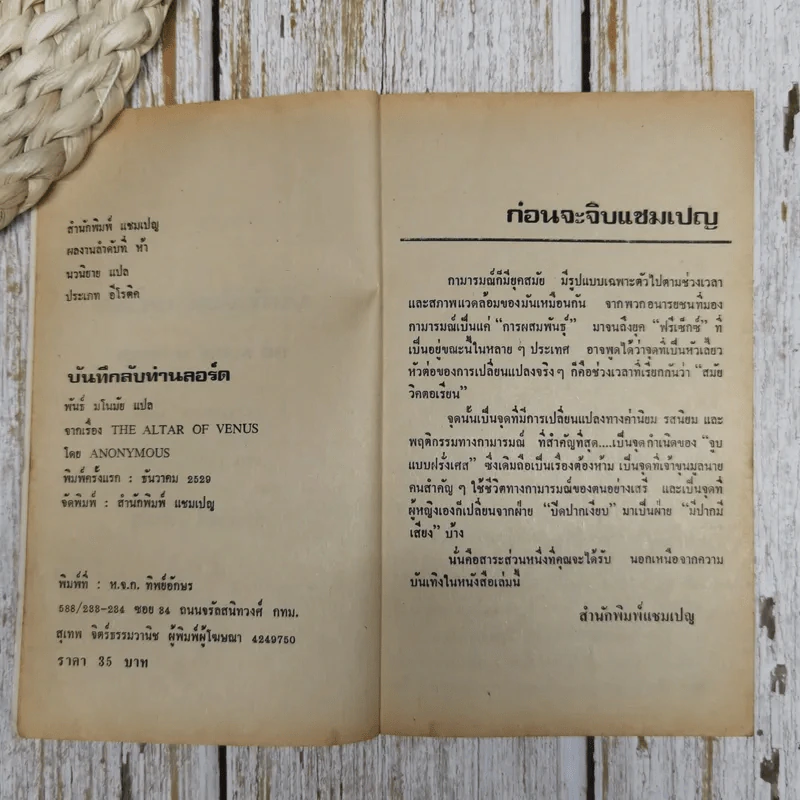 สำนักพิมพ์ แชมเปญ
ผลงานลำดับที่ ห้า
นวนิยาย แปล
ประเภท อีโรติค
บันทึกลับท่านลอร์ด
พันธุ์ มโนมัย แปล
จากเรื่อง THE ALTAR OF VENUS
โดย ANONYMOUS
พิมพ์ครั้งแรก : ธันวาคม 2529
จัดพิมพ์ : สำนักพิมพ์ แชมเปญ
พิมพ์ที่ : ห.จ.ก. ทิพย์อักษร
588/233-234 ซอย 34 ถนนจรัลสนิทวงศ์ กทม.
สุเทพ จิตร์ธรรมวานิช ผู้พิมพ์ผู้โฆษณา 4249750
ราคา 35 บาท
ก่อนจะจิบแชมเปญ
กามารมณ์ก็มียุคสมัย มีรูปแบบเฉพาะตัวไปตามช่วงเวลา
และสภาพแวดล้อมของมันเหมือนกัน จากพวกอนารยชนที่มอง
กามารมณ์เป็นแค่ "การผสมพันธุ์" มาจนถึงยุค "ฟรีเซ็กซ์" ที่
เป็นอยู่ขณะนี้ในหลาย ๆ ประเทศ อาจพูดได้ว่าจุดที่เป็นหัวเลี้ยว
หัวต่อของการเปลี่ยนแปลงจริง ๆ ก็คือช่วงเวลาที่เรียกกันว่า "สมัย
วิคตอเรียน"
จุดนั้นเป็นจุดที่มีการเปลี่ยนแปลงทางค่านิยม รสนิยม และ
พฤติกรรมทางกามารมณ์ ที่สำคัญที่สุด....เป็นจุดกำเนิดของ "จูบ
แบบฝรั่งเศส" ซึ่งเดิมถือเป็นเรื่องต้องห้าม เป็นจุดที่เจ้าขุนมูลนาย
คนสำคัญ ๆ ใช้ชีวิตทางกามารมณ์ของตนอย่างเสรี และเป็นจุดที่
ผู้หญิงเองก็เปลี่ยนจากฝ่าย "ปิดปากเงียบ" มาเป็นฝ่าย "มีปากมี
เสียง" บ้าง
นั่นคือสาระส่วนหนึ่งที่คุณจะได้รับ นอกเหนือจากความ
บันเทิงในหนังสือเล่มนี้
สำนักพิมพ์แชมเปญ